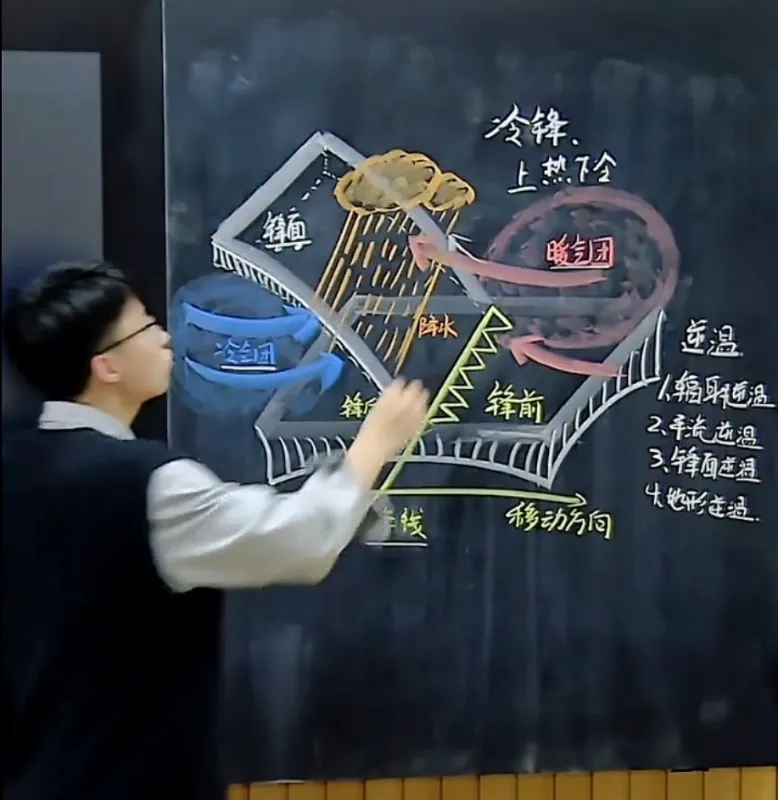 冷锋、
上热下冷
锋面
暖气团
冷气团
降水
锋
锋前
线
移动方向
逆温
1.辐射逆温
2.平流逆温
3.锋面逆温
4.地形逆温